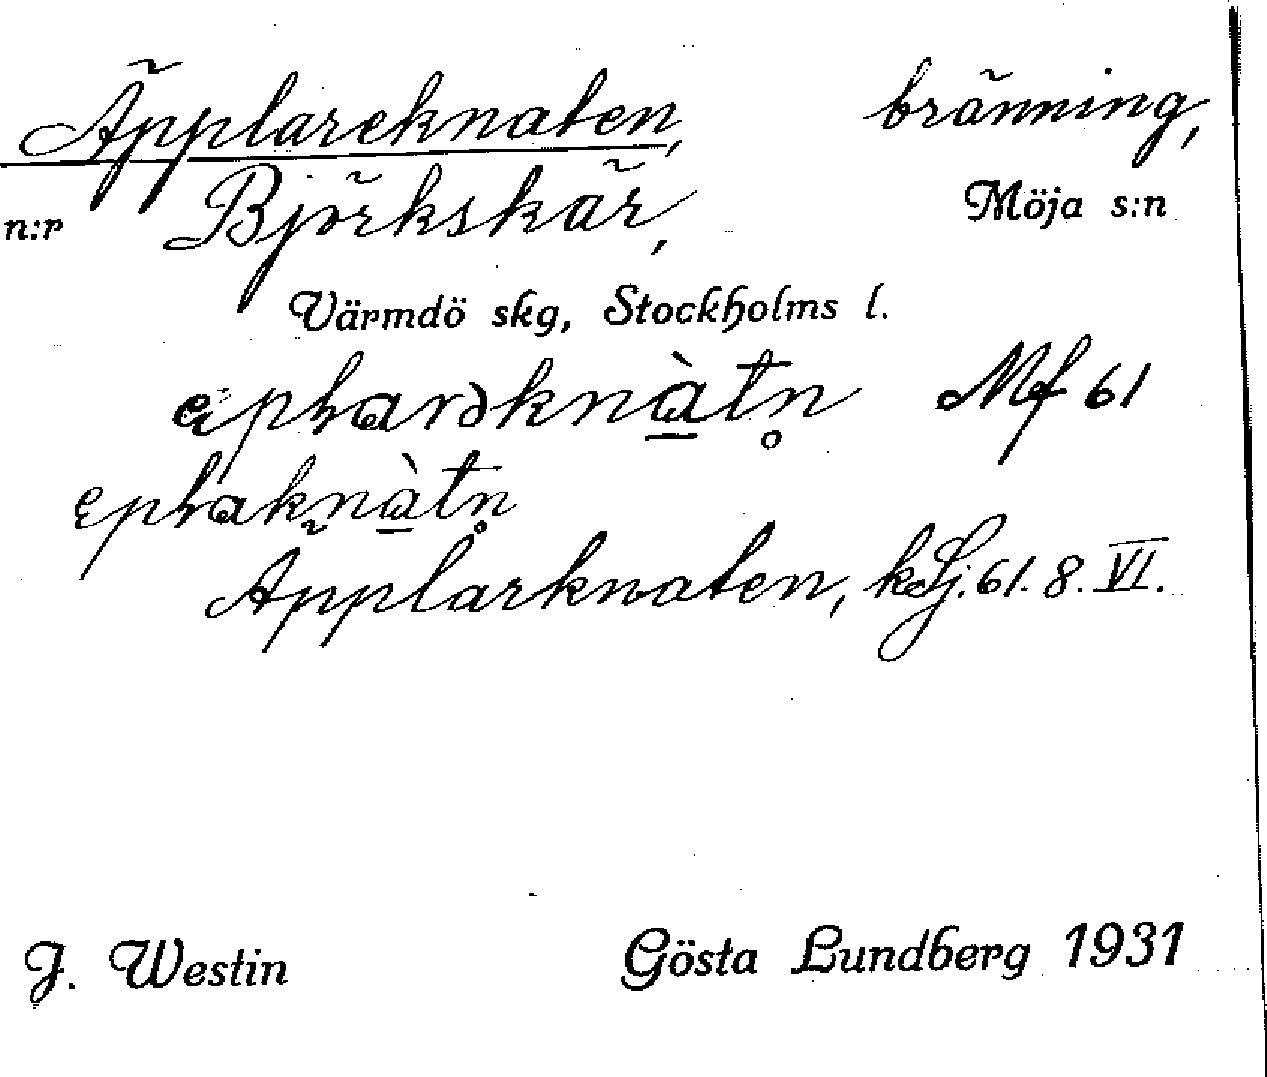 Äpplareknaten, bränning,
n:r Björkskär, Möja s:n
Värmdö skg, Stockholms l.
Mf 61
Äpplarknaten, k Lj. 61. 8. VI.
J. Westin Gösta Lundberg 1931